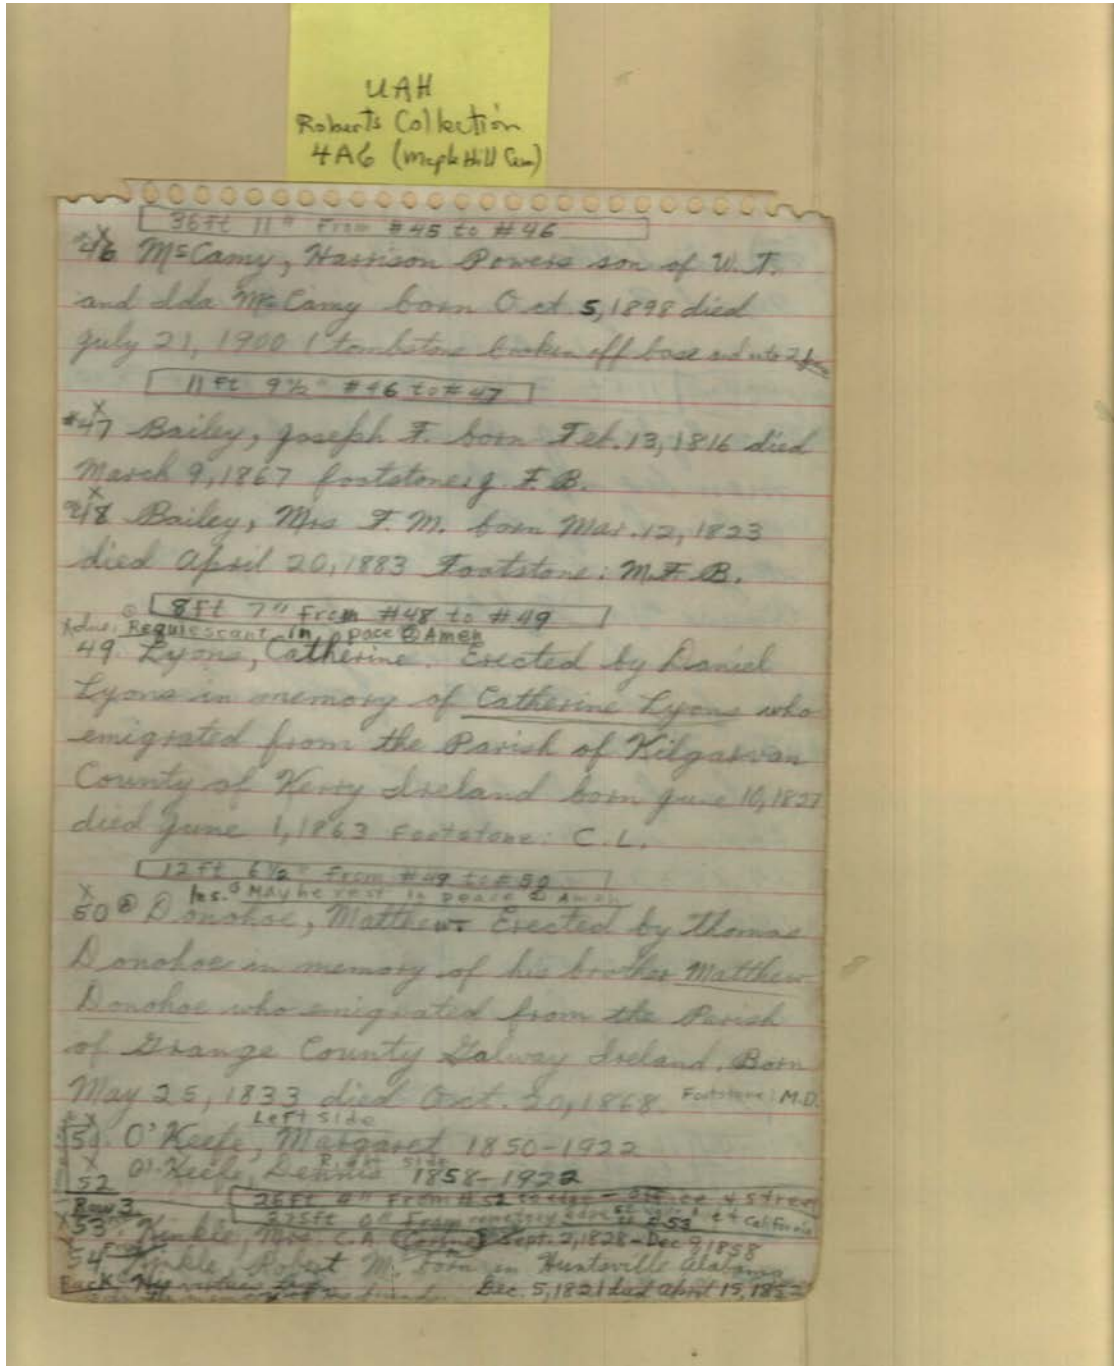 UAH
Roberts Collection
4A6 (Maple Hill Cem)
36ft 11" From #45 to #46
#46 McCamy, Harrison Powers son of W. T.
and Ida McCamy born Oct 5, 1898 died
July 21, 1900 (tombstone broken off base and into 2
11 ft 9½" #46 to #47
#47 Bailey, Joseph F. born Feb. 13, 1816 died
March 9, 1867 footstone: J. F. B.
#48 Bailey, Mrs F. M. born Mar. 12, 1823
died April 20, 1883 Footstone: M. F. B.
8ft 7" From #48 to #49
Requiescant in pace Amen
49 Lyons, Catherine. Erected by Daniel
Lyons in memory of Catherine Lyons who
emigrated from the Parish of Kilgarvan
County of Kerry Ireland born June 10, 1827
died June 1, 1863 Footstone: C. L.
12ft 6½" From #49 to #50
Ins. May he rest in peace Amen
50 Donohoe, Matthew Erected by Thomas
Donohoe in memory of his brother Matthew
Donohoe who emigrated from the Parish
of Grange County Galway Ireland. Born
May 25, 1833 died Oct. 20, 1868. Footstone: M.D.
Left side
51 O'Keefe, Margaret 1850-1922
Right side
52 O'Keefe, Dennis 1858-1922
26ft From #52 to street
Row 3 From cemetery California
53 Kinkle, Mrs. C. A. Sept. 2, 1828 - Dec 9, 1858
54 Kinkle, Robert M. Born in Huntsville Alabama
Back His virtues Dec. 5, 1821 died April 15,